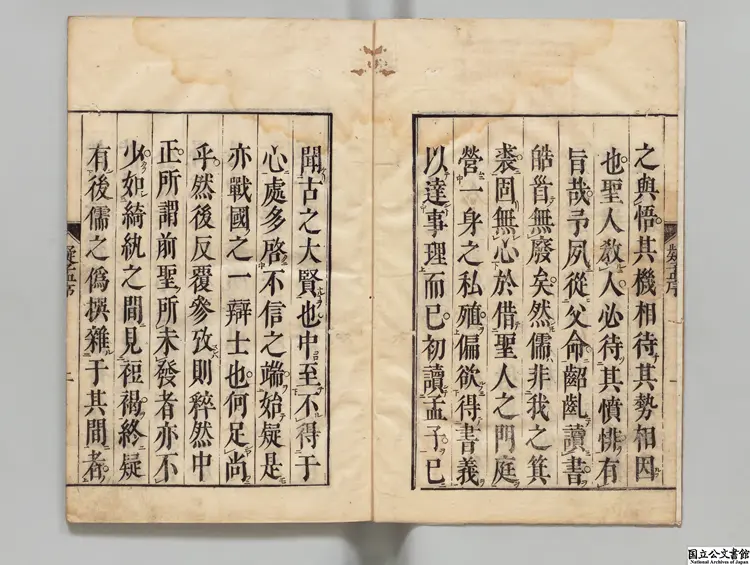 之與悟其機相待其勢相因
也聖人教人必待其憤悱有
旨哉予夙從父命齠齔讀書
皓首無廢矣然儒非我之箕
裘固無心於借聖人之門庭
營一身之私殖偏欲得書義
以達事理而已初讀孟子已
疑孟序
聞古之大賢也中至不得于
心處多啓不信之端始疑是
亦戰國之一辯士也何足尚
乎然後反覆參攷則稡然中
正所謂前聖所未發者亦不
少如綺紈之間見裋褐終疑
有後儒之僞撰雜于其間者
疑孟序
国立公文書館
National Archives of Japan